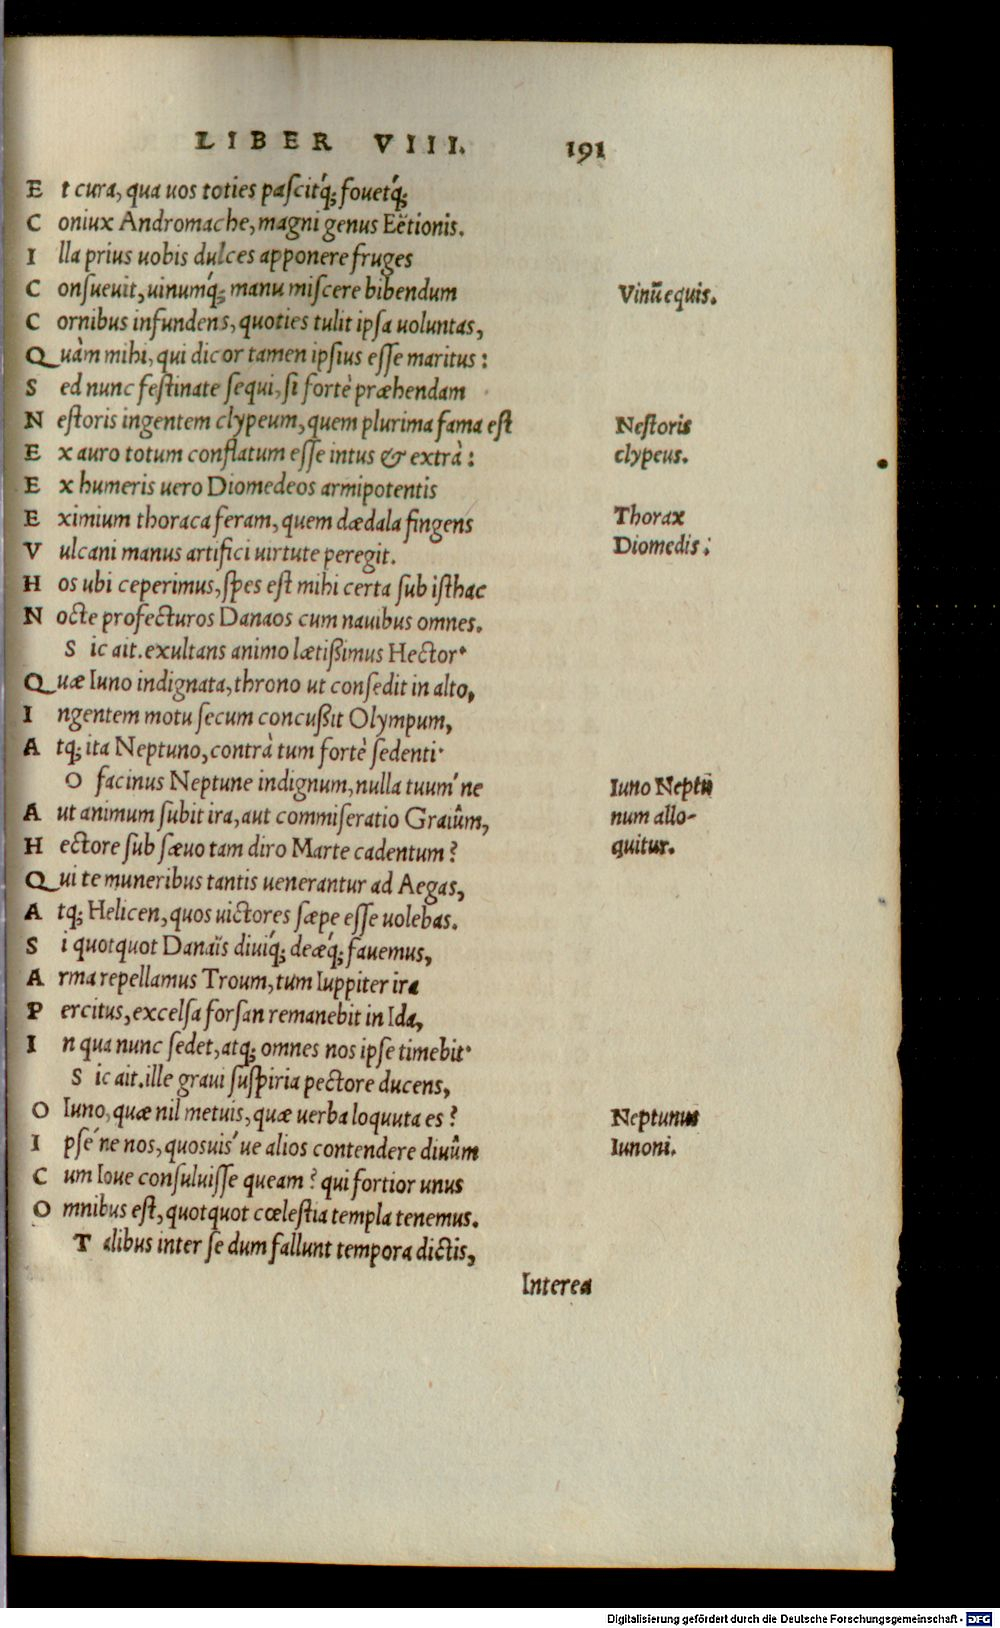 LIBER VIII. 191
Et cura, qua uos toties pascitq́; fouetq́;
Coniux Andromache, magni genus Eëtionis.
Illa prius uobis dulces apponere fruges
Consueuit, uinumq́; manu miscere bibendum
Vinũ equis.
Cornibus infundens, quoties tulit ipsa uoluntas,
Quàm mihi, qui dicor tamen ipsius esse maritus:
Sed nunc festinate sequi, si fortè præhendam
Nestoris ingentem clypeum, quem plurima fama est
Nestoris
Ex auro totum conflatum esse intus & extrà:
clypeus.
Ex humeris uero Diomedeos armipotentis
Eximium thoraca feram, quem dædala fingens
Thorax
Vulcani manus artifici uirtute peregit.
Diomedis:
Hos ubi ceperimus, spes est mihi certa sub isthac
Nocte profecturos Danaos cum nauibus omnes.
Sic ait. exultans animo lætißimus Hector.
Quæ Iuno indignata, throno ut consedit in alto,
Ingentem motu secum concußit Olympum,
Atq; ita Neptuno, contrà tum fortè sedenti.
O facinus Neptune indignum, nulla tuum'ne
Iuno Neptũ
Aut animum subit ira, aut commiseratio Graiûm,
num allo-
Hectore sub sæuo tam diro Marte cadentum?
quitur.
Qui te muneribus tantis uenerantur ad Aegas,
Atq; Helicen, quos uictores sæpe esse uolebas.
Si quotquot Danaïs diuiq́; deæq́; fauemus,
Arma repellamus Troum, tum Iuppiter ira
Percitus, excelsa forsan remanebit in Ida,
In qua nunc sedet, atq; omnes nos ipse timebit.
Sic ait. ille graui suspiria pectore ducens,
O Iuno, quæ nil metuis, quæ uerba loquuta es?
Neptunus
Ipse'ne nos, quosuis'ue alios contendere diuûm
Iunoni.
Cum Ioue consuluisse queam? qui fortior unus
Omnibus est, quotquot cœlestia templa tenemus.
Talibus inter se dum fallunt tempora dictis,
Interea
Digitalisierung gefördert durch die Deutsche Forschungsgemeinschaft - DFG